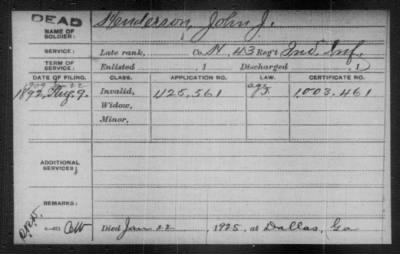 DEAD
NAME OF SOLDIER: Henderson, John J.
SERVICE: Late rank, Co. H, 43 Reg't Ind. Inf.
TERM OF SERVICE: Enlisted , 1 Discharged , 1
DATE OF FILING. CLASS. APPLICATION NO. LAW. CERTIFICATE NO.
1892, Aug. 9. Invalid, 1125,561 1,003,461
Widow,
Minor,
ADDITIONAL SERVICES:
REMARKS:
Died Jan 22, 1925, at Dallas, Ga